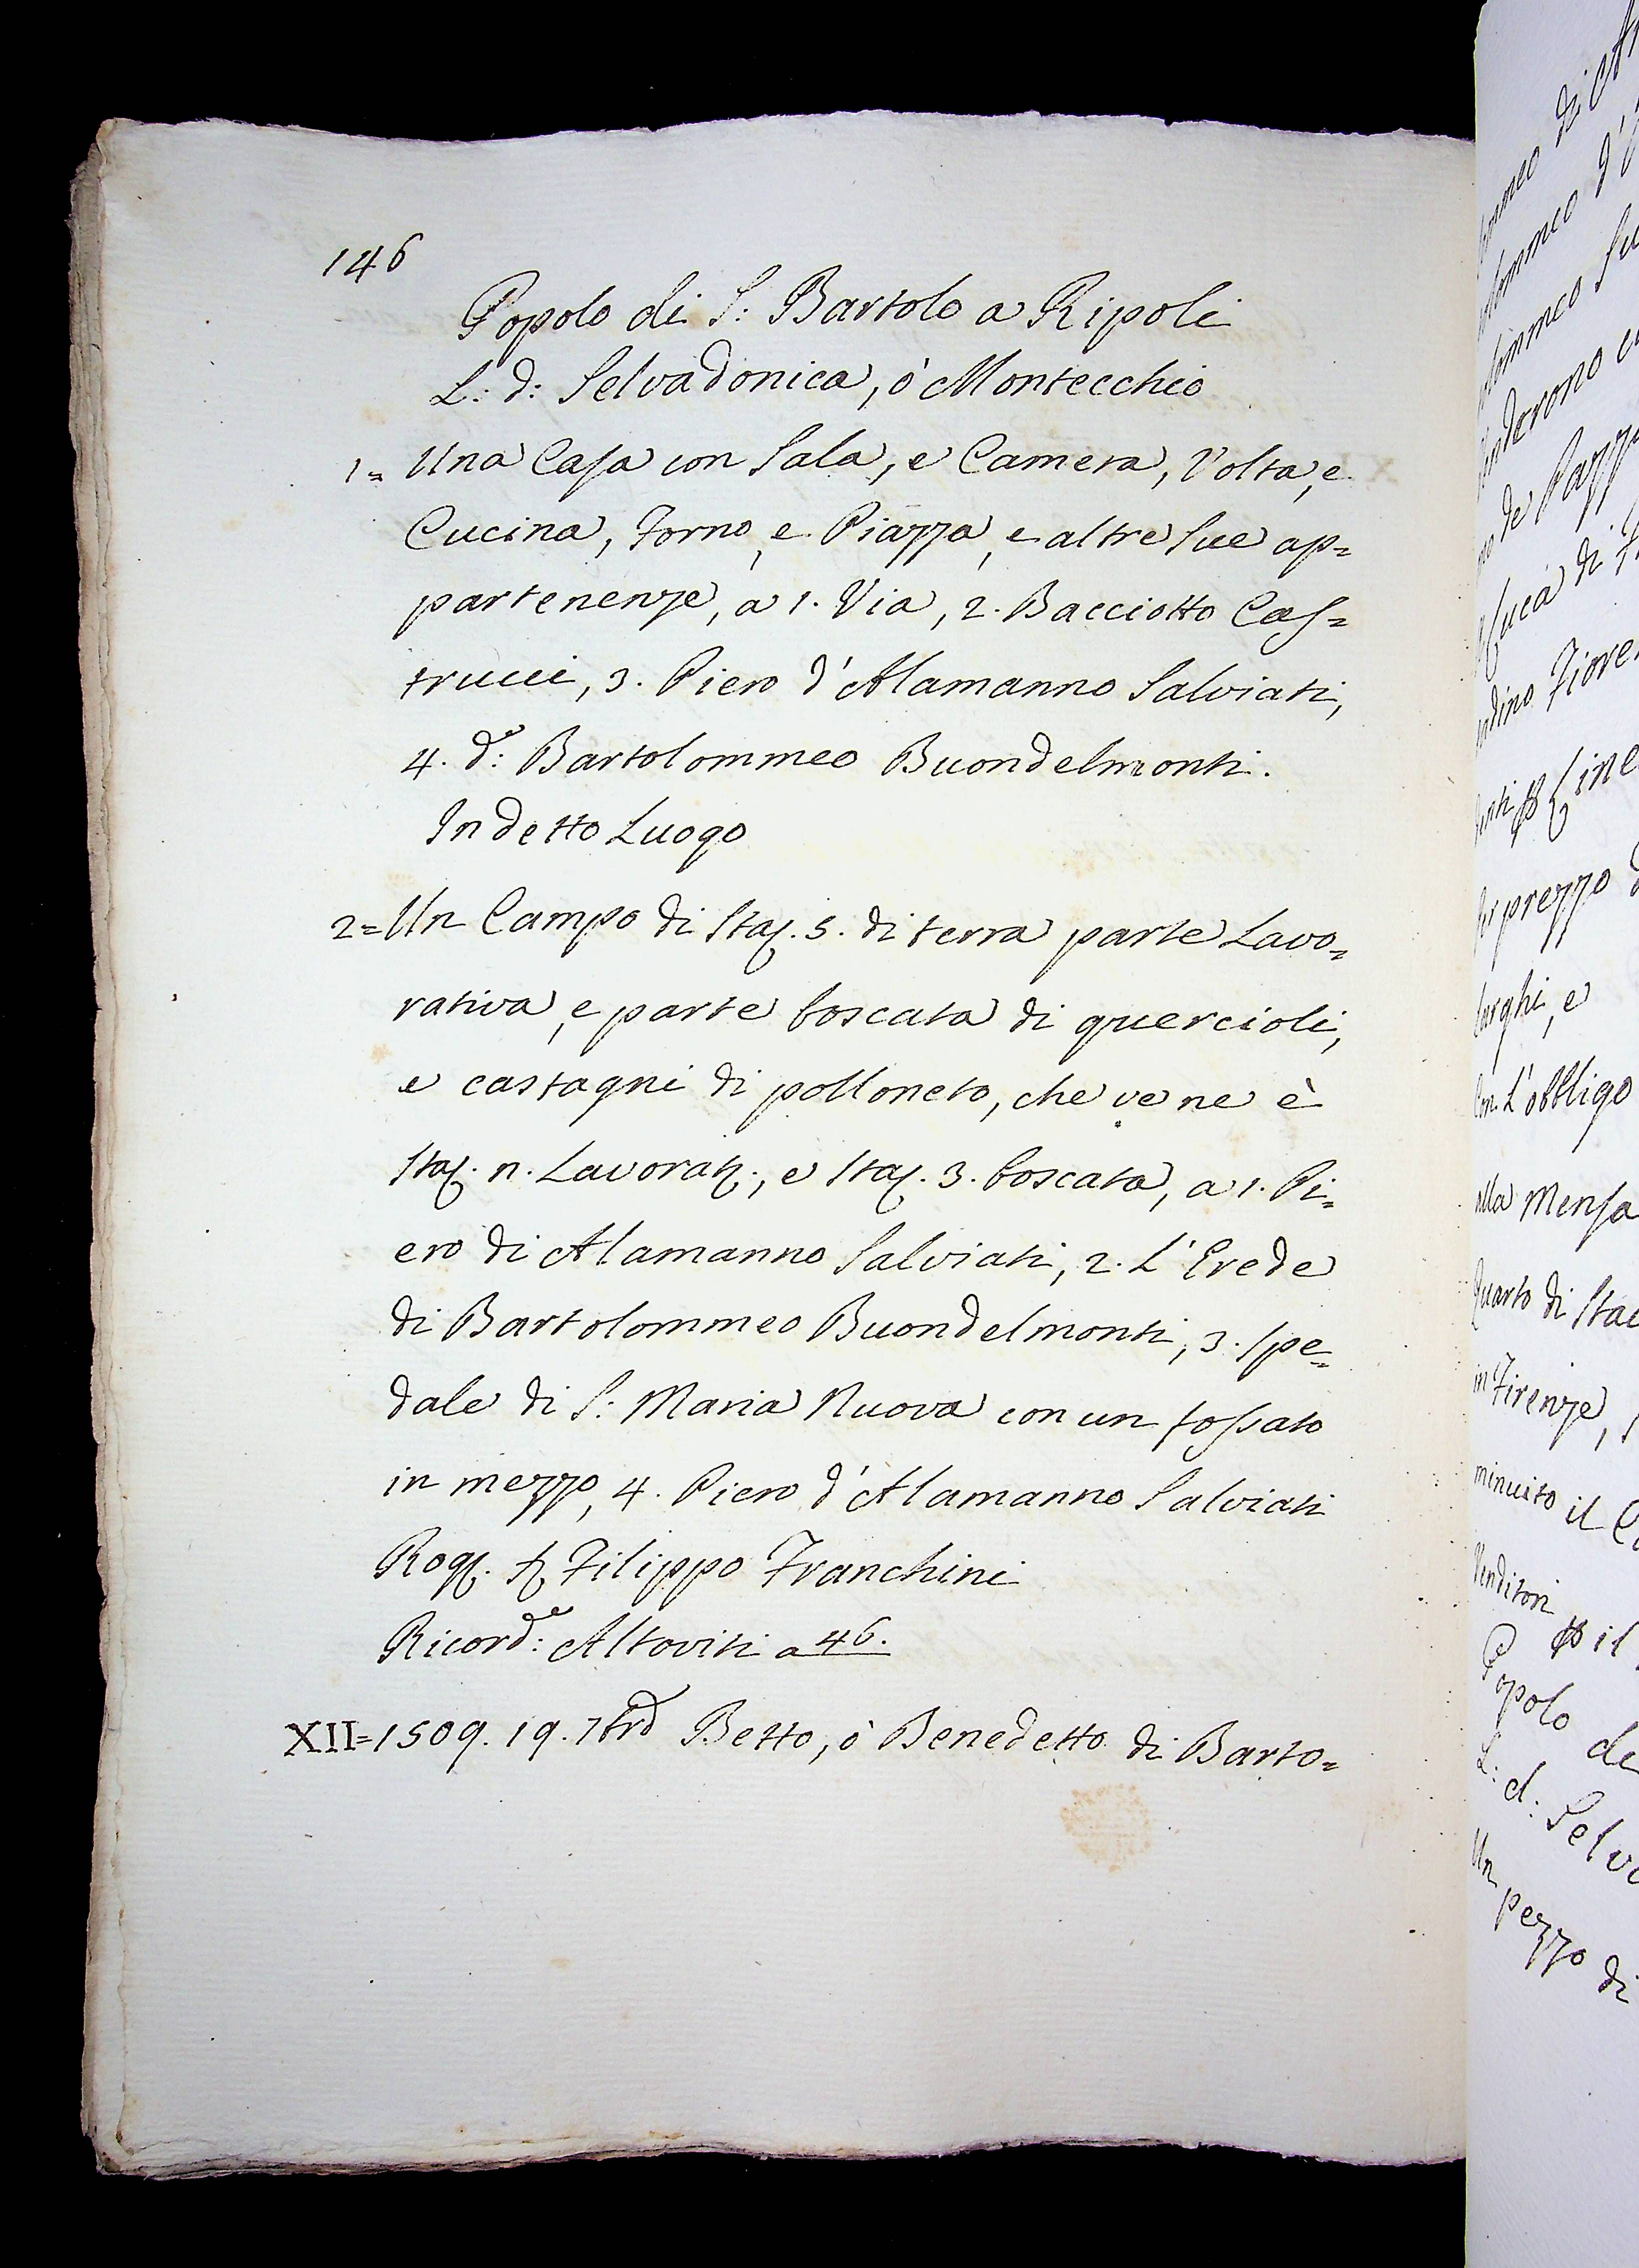 146
Popolo di S: Bartolo a Ripoli
L: d: Selvadonica, ò Montecchio
1= Una Casa con Sala, e Camera, Volta, e
Cucina, Forno, e Piazza, e altre sue ap=
partenenze, a 1. Via, 2. Bacciotto Cas=
trucci, 3. Piero d'Alamanno Salviati,
4. d.º: Bartolommeo Buondelmonti.
In detto Luogo
2= Un Campo di Staj. 5. di terra parte Lavo=
rativa, e parte boscata di quercioli,
e castagni di polloneto, che ve ne è
Staj. n. Lavorat., e Staj. 3. boscata, a 1. Pi=
ero di Alamanno Salviati, 2. L'Erede
di Bartolommeo Buondelmonti, 3. Spe=
dale di S: Maria Nuova con un fossato
in mezzo, 4. Piero d'Alamanno Salviati
Rog. Filippo Franchini
Ricord.e: Altoviti a 46.
XII= 1509. 19. 7bre Betto, ò Benedetto di Barto=
de Pazz
Luca di
Fiore
prezzo
larghi, e
L'obbligo
alla Mensa
Quarto di Sta
in Firenze,
il
Venditori il
Popolo di
L: d: Selv
Un pezzo di